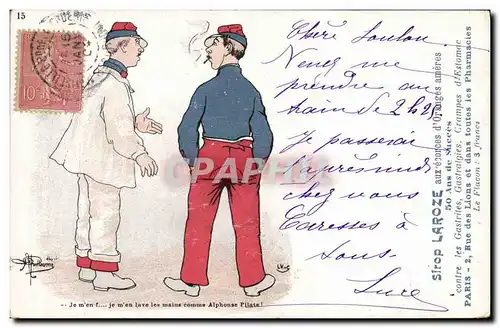 15
Chère Loulou
Venez me
prendre au
train de 2h25
Je passerai
l'après midi
chez vous
Caresses à
tous
Luce
-- Je m'en f.... je m'en lave les mains comme Alphonse Pilate !
Sirop LAROZE aux écorces d'Oranges amères
50 Ans de Succès
contre les Gastrites, Gastralgies, Crampes d'Estomac
PARIS - 2, Rue des Lions et dans toutes les Pharmacies
Le Flacon : 3 francs
CPARAMA